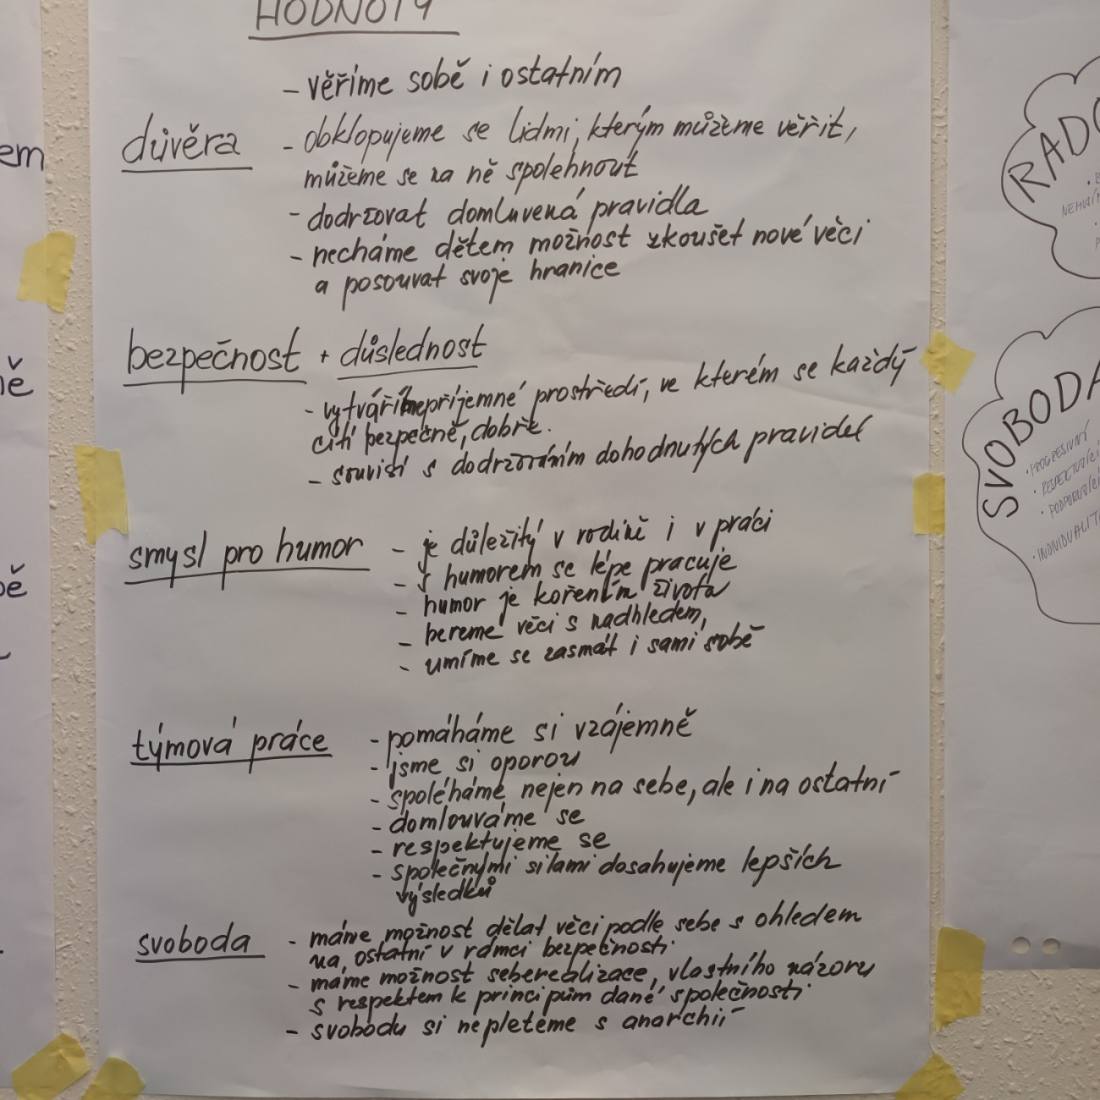 HODNOTY
- věříme sobě i ostatním
důvěra
- obklopujeme se lidmi, kterým můžeme věřit,
můžeme se na ně spolehnout
- dodržovat domluvená pravidla
- necháme dětem možnost zkoušet nové věci
a posouvat svoje hranice
bezpečnost + důslednost
- vytváříme příjemné prostředí, ve kterém se každý
cítí bezpečně, dobře.
- souvisí s dodržováním dohodnutých pravidel
smysl pro humor
- je důležitý v rodině i v práci
- s humorem se lépe pracuje
- humor je kořením života
- bereme věci s nadhledem,
- umíme se zasmát i sami sobě
týmová práce
- pomáháme si vzájemně
- jsme si oporou
- spoléháme nejen na sebe, ale i na ostatní
- domlouváme se
- respektujeme se
- společnými silami dosahujeme lepších
výsledků
svoboda
- máme možnost dělat věci podle sebe s ohledem
na ostatní v rámci bezpečnosti
- máme možnost seberealizace, vlastního názoru
s respektem k principům dané společnosti
- svobodu si nepleteme s anarchií
em
ně
bě
RADO
SVOBODA
• PROGRESIVNÍ